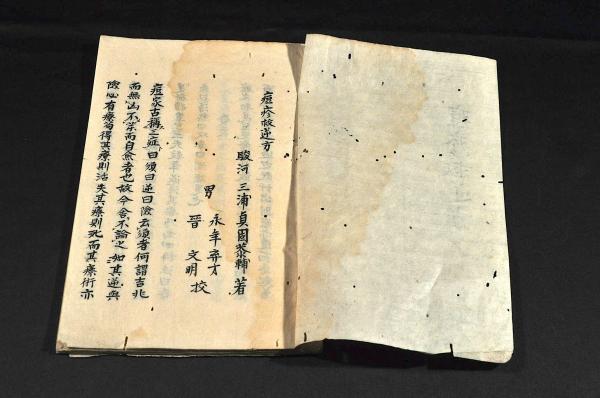 痘疹救逆方
駿河 三浦貞固黎輔著
男 永年弃才
晋 文明 校
痘家古稱之症曰順曰逆曰險云順者何謂吉兆
而無凶不藥而自愈者也故今舍不論之如其逆與
險必有療苟得其療則活失其療則死而其療術亦